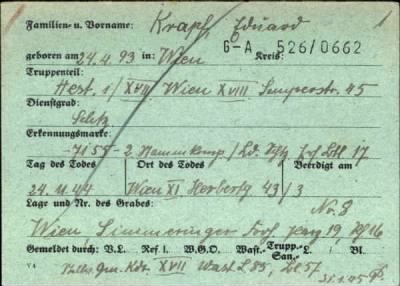 Familien- u. Vorname: Krapf, Eduard 1
geboren am 24.4.93 in: Wien Kreis:
G-A 526/0662
Truppenteil:
Hest. 1/XVII Wien XVIII Semperstr. 45
Dienstgrad:
Erkennungsmarke:
-7155- 2. Stammkomp./Ld. Schtz. Btl. 17
Tag des Todes Ort des Todes Beerdigt am
24.11.44 Wien XI Herbertg 43/3
Lage und Nr. des Grabes: No. 8
Wien, Simmeringer Frdf.
Gemeldet durch: V.L. Ref I. W.G.O. Wast.- Trupp.- San.- L. Bl.
Gen. Kdo. XVII Wast L 85, Bl 57
31.1.45